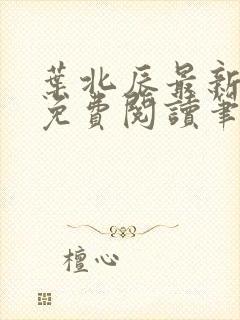 葉北辰最新
免費閱讀筆
檀心